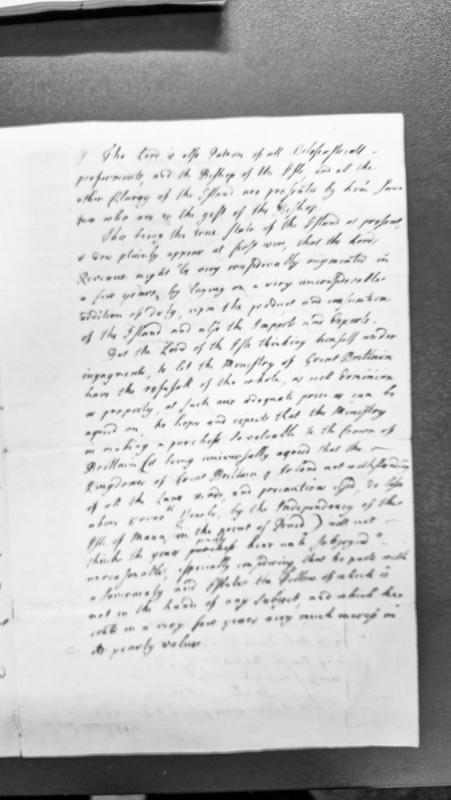 The Lord is also Patron of all Eclesiasticall
preferments, and the Bishop of the Isle, and all the
other Clergy of the Island are presented by him save
two who are in the gift of the Bishop.
This being the true State of the Island at present,
it does plainly appear at first view, that the Lords
Revenue might be very considerably augmented in
a few years, by laying on a very inconsiderable
addition of duty, upon the product and
of the Island and also the Imports and Exports.
But the Lord of the Isle thinking himself under
ingagments, to let the Ministry of Great Brittain
have the refusall of the whole, as well Dominion
as property, at such an adequate price as can be
agreed on, he hops and expects that the Ministry
in making a purchass so valuable to the Crown of
Brittain (it being universally agreed that the
Kingdomes of Great Brittain & Ireland notwithstanding
of all the Laws made, and precautions used, do loss
above Yearly, by the Independency of the
Isle of Mann, in the point of Trade) will not
think the price hear unto Subjoyned
unreasonable, especially considering that he parts with
a Soveranity and Estate the fellow of which is
not in the hands of any Subject, and which he
could in a very few years very much incress in
its yearly value